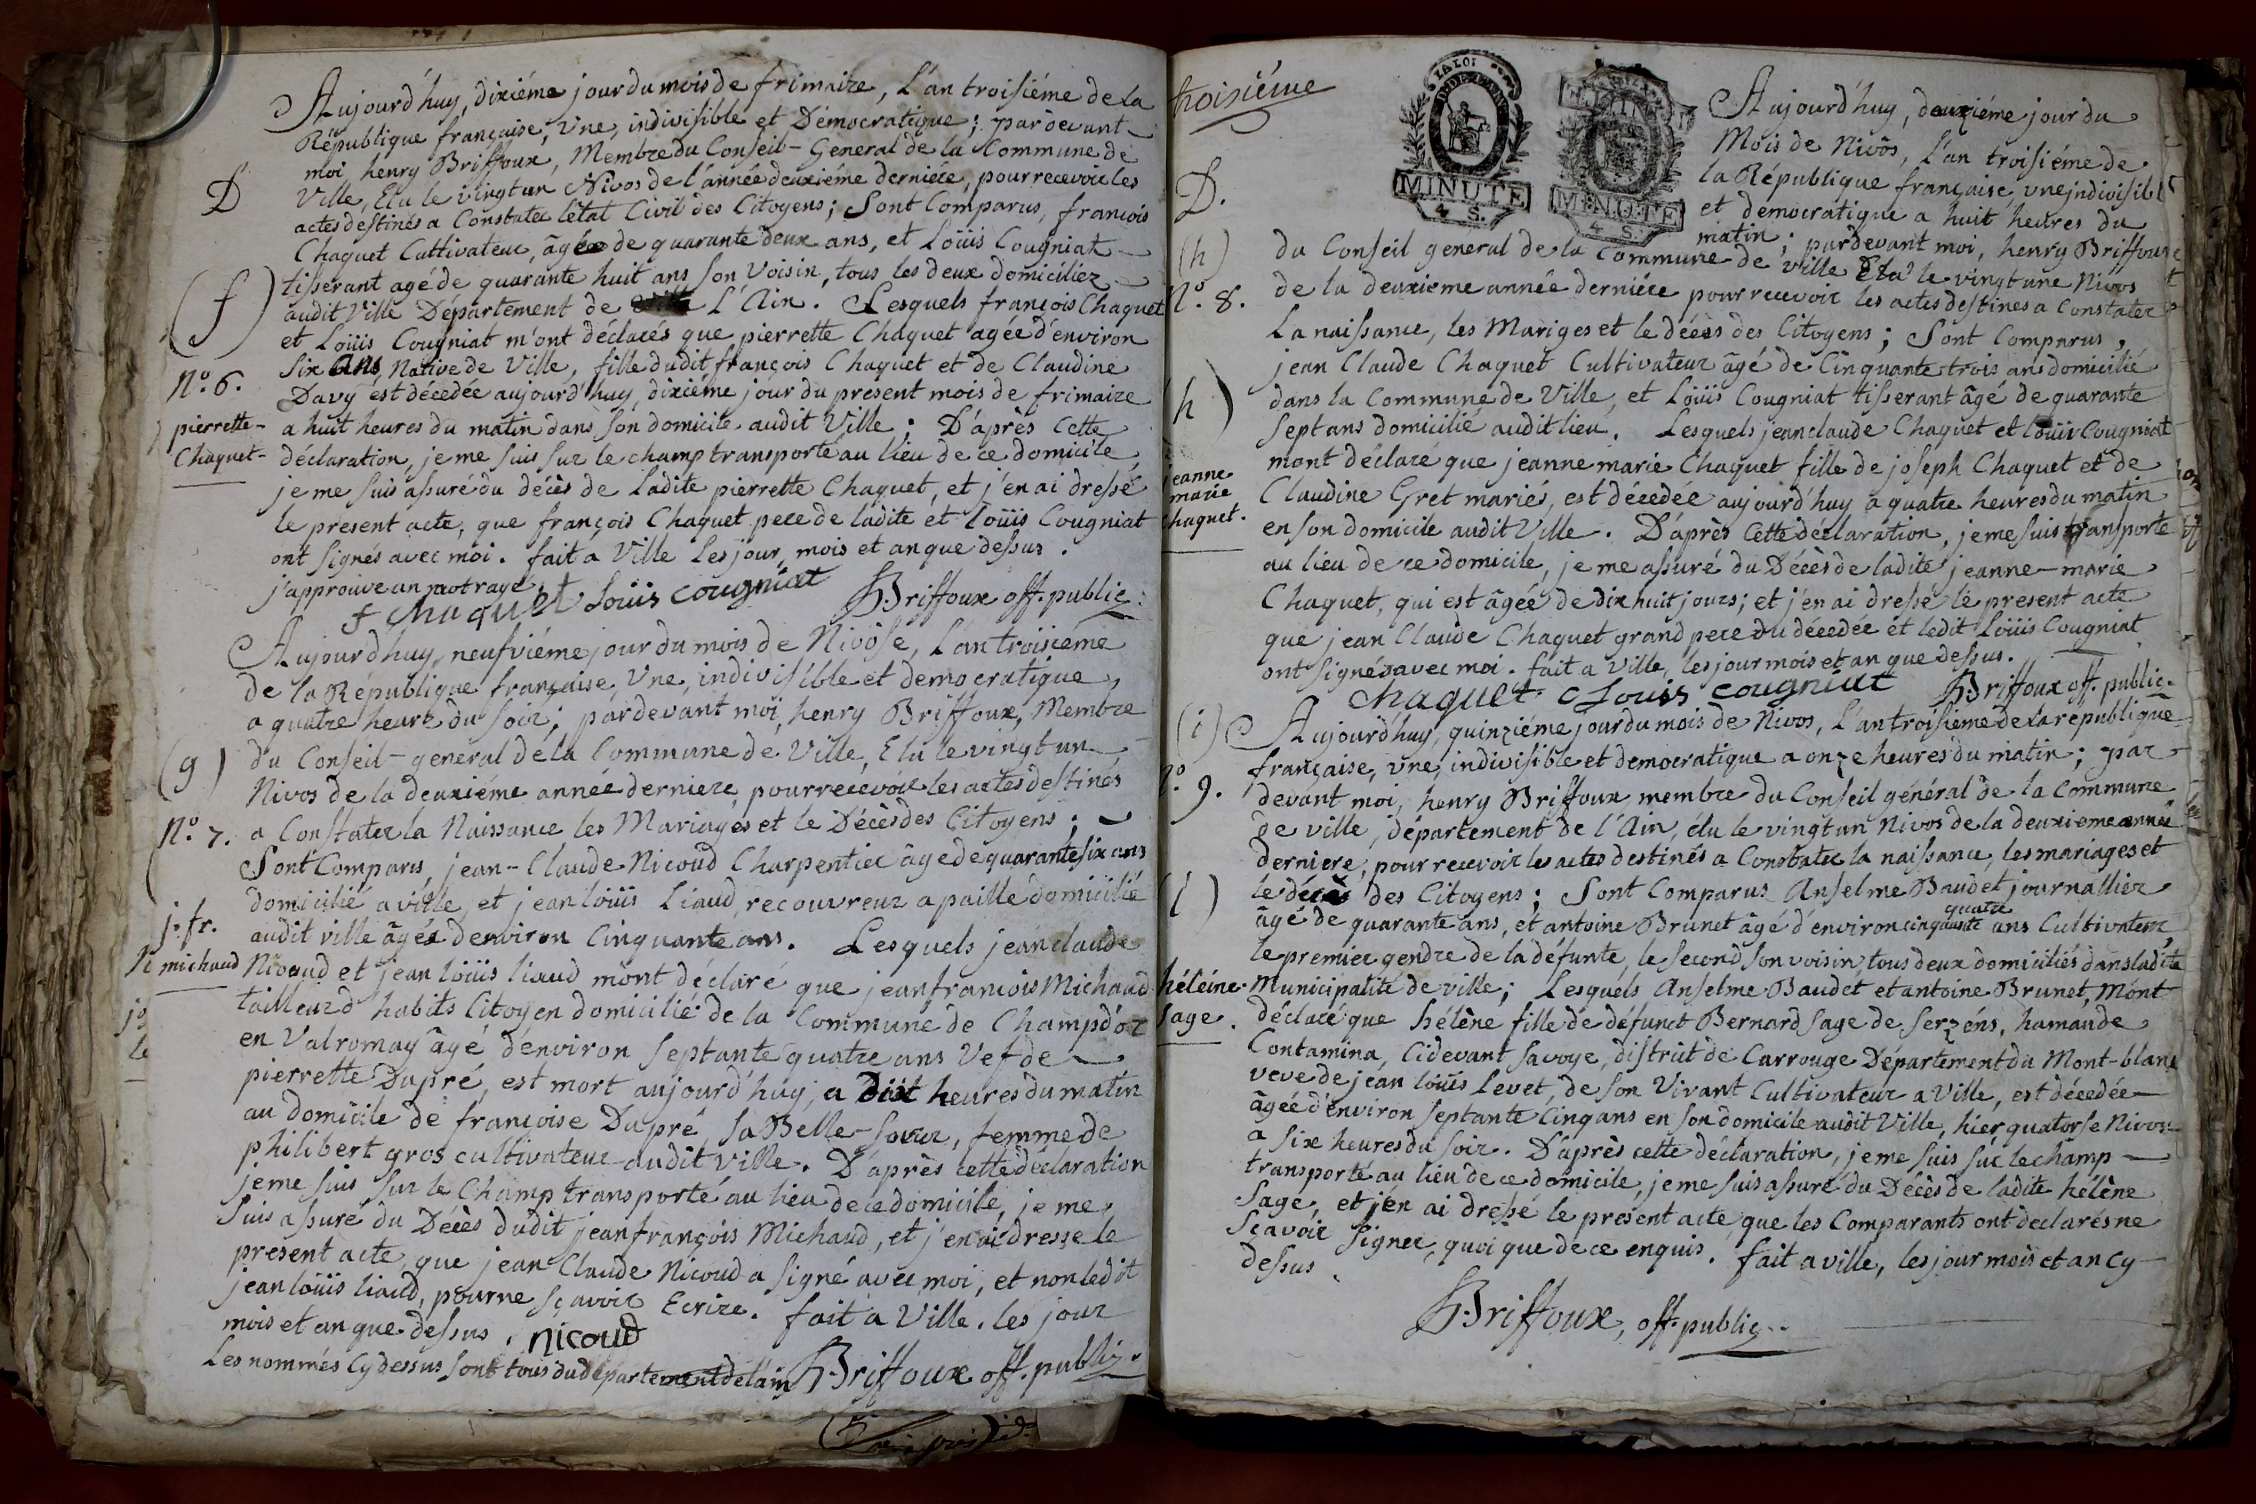 Aujourd'huy, dixiéme jour du mois de frimaire, l'an troisiéme de la
République française, vne, indivisible et Démocratique; par devant
moi, henry Briffoux, Membre du Conseil-General de la Commune de
D
Ville, Elu le vingt un Nivos de l'année deuxiéme derniére, pour recevoir les
actes destinés a Constater l'état Civil des Citoyens; Sont Comparus, francois
Chaquet Cultivateur, âgé de quarante deux ans, et Loüis Cougniat
tisserant agé de quarante huit ans son Voisin, tous les deux domiciliez
(f)
audit Ville Département de L'Ain. Lesquels françois Chaquet
et Loüis Cougniat m'ont déclarés que pierrette Chaquet agée d'environ
Six ans, Native de Ville, fille dudit françois Chaquet et de Claudine
N.º 6.
Davy est décedée aujourd'huy, dixiéme jour du present mois de frimaire
pierrette-
a huit heures du matin dans son domicile audit Ville. D'après cette
Chaquet-
déclaration, je me suis sur le champ transporté au lieu de ce domicile,
je me suis assuré du décès de ladite pierrette Chaquet, et j'en ai dressé
le present acte, que françois Chaquet pere de ladite et Loüis Cougniat
ont signés avec moi. fait a Ville les jour, mois et an que dessus.
j'approuve un mot rayé.
f chaquet Loüis cougniat HBriffoux off. public.
Aujourd'huy, neufviéme jour du mois de Nivôse, L'an troisiéme
de la République française, Vne, indivisible et democratique,
a quatre heure du soir; pardevant moi, henry Briffoux, Membre
(g)
du Conseil-general de la Commune de Ville, Elu le vingt un
Nivos de la deuxiéme année derniere, pour recevoir les actes destinés
N.º 7.
a Constater la Naissance les Mariages et le Décès des Citoyens;
Sont Comparus, jean-Claude Nicoud Charpentier âgé de quarante six ans
domicilié a ville, et jean loüis Liaud, recouvreur a paille domicilié
j. fr.
audit ville âgé d'environ Cinquante ans. Lesquels jean claude
michaud
Nicoud et jean loüis liaud m'ont declaré que jean francois Michaud
tailleur d'habits Citoyen domicilié de la Commune de Champdor
en Valromay âgé d'environ septante quatre ans Vef de
pierrette Dupré, est mort aujourd'huy, a Dix heures du matin
au domicile de francoise Dupré sa Belle-soeur, femme de
philibert gros cultivateur audit Ville. D'après cette déclaration
je me suis sur le Champ transporté au lieu de ce domicile, je me
suis assuré du Décès dudit jean françois Michaud, et j'en ai dressé le
present acte, que jean Claude Nicoud a signé avec moi, et non ledit
jean loüis liaud, pour ne sçavoir Ecrire. fait a Ville. les jour
mois et an que dessus. nicoud
Les nommés Cy dessus sont tous du département de l'ain HBriffoux off. public.
troisiéme
LA LOI
MINUTE
4 S.
MINUTE
4 S.
Aujourd'huy, deuxiéme jour du
Mois de Nivôs, l'an troisiéme de
la République française, vne, indivisible
D.
et democratique a huit heures du
matin; pardevant moi, henry Briffoux
(h)
du Conseil general de la Commune de Ville Elu le vingt une Nivos
N.º 8.
de la deuxieme année derniére pour recevoir les actes destines a Constater
La naissance, les Mariges et le décès des Citoyens; Sont Comparus,
jean Claude Chaquet Cultivateur âgé de Cinquante trois ans domicilié
h)
dans la Commune de Ville, et Loüis Cougniat tisserant âgé de quarante
sept ans domicilié audit lieu. Lesquels jean claude Chaquet et loüis Cougniat
jeanne
mont déclaré que jeanne marie Chaquet fille de joseph Chaquet et de
marie
Claudine Gret mariés, est décedée aujourd'huy a quatre heures du matin
chaquet.
en son domicile audit Ville. D'après cette déclaration, je me suis transporté
au lieu de ce domicile, je me assuré du Décès de ladite jeanne-marie
Chaquet, qui est âgée de dix huit jours; et j'en ai dressé le present acte
que jean Claude Chaquet grand pere du décedée et ledit Loüis Cougniat
ont signés avec moi. fait a Ville, les jour mois et an que dessus.
chaquet Louis cougniat HBriffoux off. public.
(i)
Aujourd'huy, quinziéme jour du mois de Nivos, l'an troisiéme de la république
française, vne, indivisible et democratique a onze heures du matin; par
N.º 9.
devant moi, henry Briffoux, membre du Conseil général de la Commune
de ville, département de l'Ain, élu le vingt un Nivos de la deuxieme année
derniere, pour recevoir les actes destinés a Constater la naissance, les mariages et
(i)
le décès des Citoyens; Sont Comparus Anselme Baudet journallier
quatre
âgé de quarante ans, et antoine Brunet âgé d'environ cinquante ans Cultivateur,
le premier gendre de la défunte, le second son voisin, tous deux domiciliés dans ladite
héléine
Municipalité de ville; Lesquels Anselme Baudet et antoine Brunet, M'ont
sage.
déclaré que hélène fille de défunct Bernard sage de serzéns, hamande
Contamina, Cidevant savoye, district de Carrouge Département du Mont-blanc
veve de jéan loüis Levet, de son Vivant Cultivateur a Ville, est décedée
âgée d'environ septante Cinq ans en son domicile audit Ville, hier quatorse Nivos
a six heures du soir. D'après cette déclaration, je me suis sur le champ
transporté au lieu de ce domicile, je me suis assuré du Décès de ladite hélène
Sage, et j'en ai dressé le present acte, que les Comparants ont declarés ne
sçavoir signer, quoi que de ce enquis. fait a ville, les jour mois et an cy
dessus.
HBriffoux, off. public.